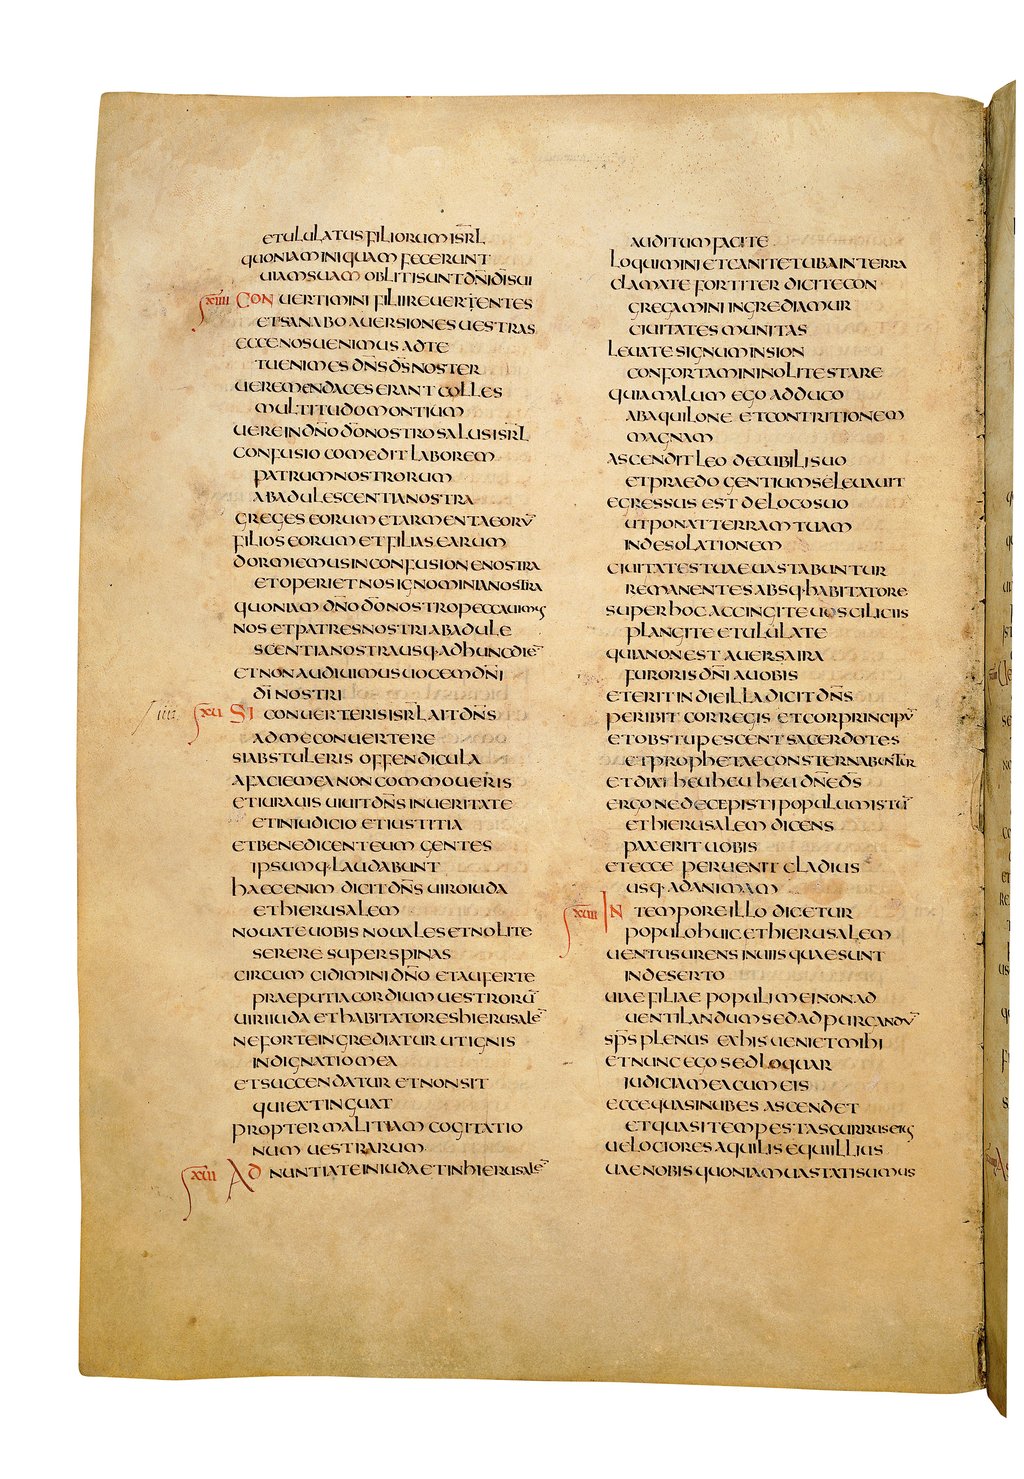 et ululatus filiorum isr̄l
quoniam iniquam fecerunt
uiam suam obliti sunt dn̄i dī sui
xiiii Conuertimini filii reuertentes
et sanabo auersiones uestras
ecce nos uenimus ad te
tu enim es dn̄s ds̄ noster
uere mendaces erant colles
multitudo montium
uere in dn̄o dō nostro salus isr̄l
confusio comedit laborem
patrum nostrorum
ab adulescentia nostra
greges eorum et armenta eorū
filios eorum et filias earum
dormiemus in confusione nostra
et operiet nos ignominia nostra
quoniam dn̄o dō nostro peccauimus
nos et patres nostri ab adule
scentia nostra usq· ad hunc diē
et non audiuimus uocem dn̄i
dī nostri
xu Si conuerteris isr̄l ait dn̄s
ad me conuertere
si abstuleris offendicula
a facie mea non commoueris
et iurauis uiuit dn̄s in ueritate
et in iudicio et iustitia
et benedicent eum gentes
ipsumq· laudabunt
haec enim dicit dn̄s uiro iuda
et hierusalem
nouate uobis nouales et nolite
serere super spinas
circumcidimini dn̄o et auferte
praeputia cordium uestrorū
uiri iuda et habitatores hierusalē
ne forte ingrediatur ut ignis
indignatio mea
et succendatur et non sit
qui extinguat
propter malitiam cogitatio
num uestrarum
xui Adnuntiate in iuda et in hierusalē
auditum facite
loquimini et canite tuba in terra
clamate fortiter dicite con
gregamini ingrediamur
ciuitates munitas
leuate signum in sion
confortamini nolite stare
quia malum ego adduco
ab aquilone et contritionem
magnam
ascendit leo de cubili suo
et praedo gentium se leuauit
egressus est de loco suo
ut ponat terram tuam
in desolationem
ciuitates tuae uastabuntur
remanentes absq· habitatore
super hoc accingite uos ciliciis
plangite et ululate
quia non est auersa ira
furoris dn̄i a uobis
et erit in die illa dicit dn̄s
peribit cor regis et cor principū
et obstupescent sacerdotes
et prophetae consternabuntur
et dixi heu heu heu dn̄e ds̄
ergone decepisti populum istū
et hierusalem dicens
pax erit uobis
et ecce peruenit gladius
usq· ad animam
xuii In tempore illo dicetur
populo huic et hierusalem
uentus urens in uiis quae sunt
in deserto
uiae filiae populi mei non ad
uentilandum sed ad purgandū
sp̄s plenus ex his ueniet mihi
et nunc ego sed loquar
iudicia mea cum eis
ecce quasi nubes ascendet
et quasi tempestas currus eius
uelociores aquilis equi illius
uae nobis quoniam uastati sumus